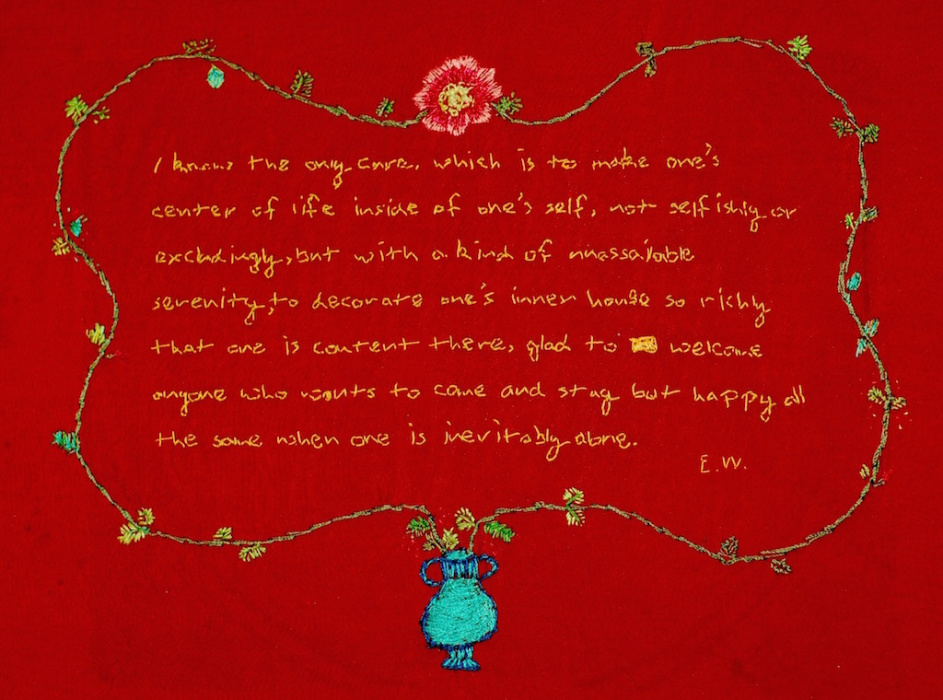 I know the only cure, which is to make one's
center of life inside of one's self, not selfishly or
excludingly, but with a kind of unassailable
serenity, to decorate one's inner house so richly
that one is content there, glad to welcome
anyone who wants to come and stay but happy all
the same when one is inevitably alone.
E.W.